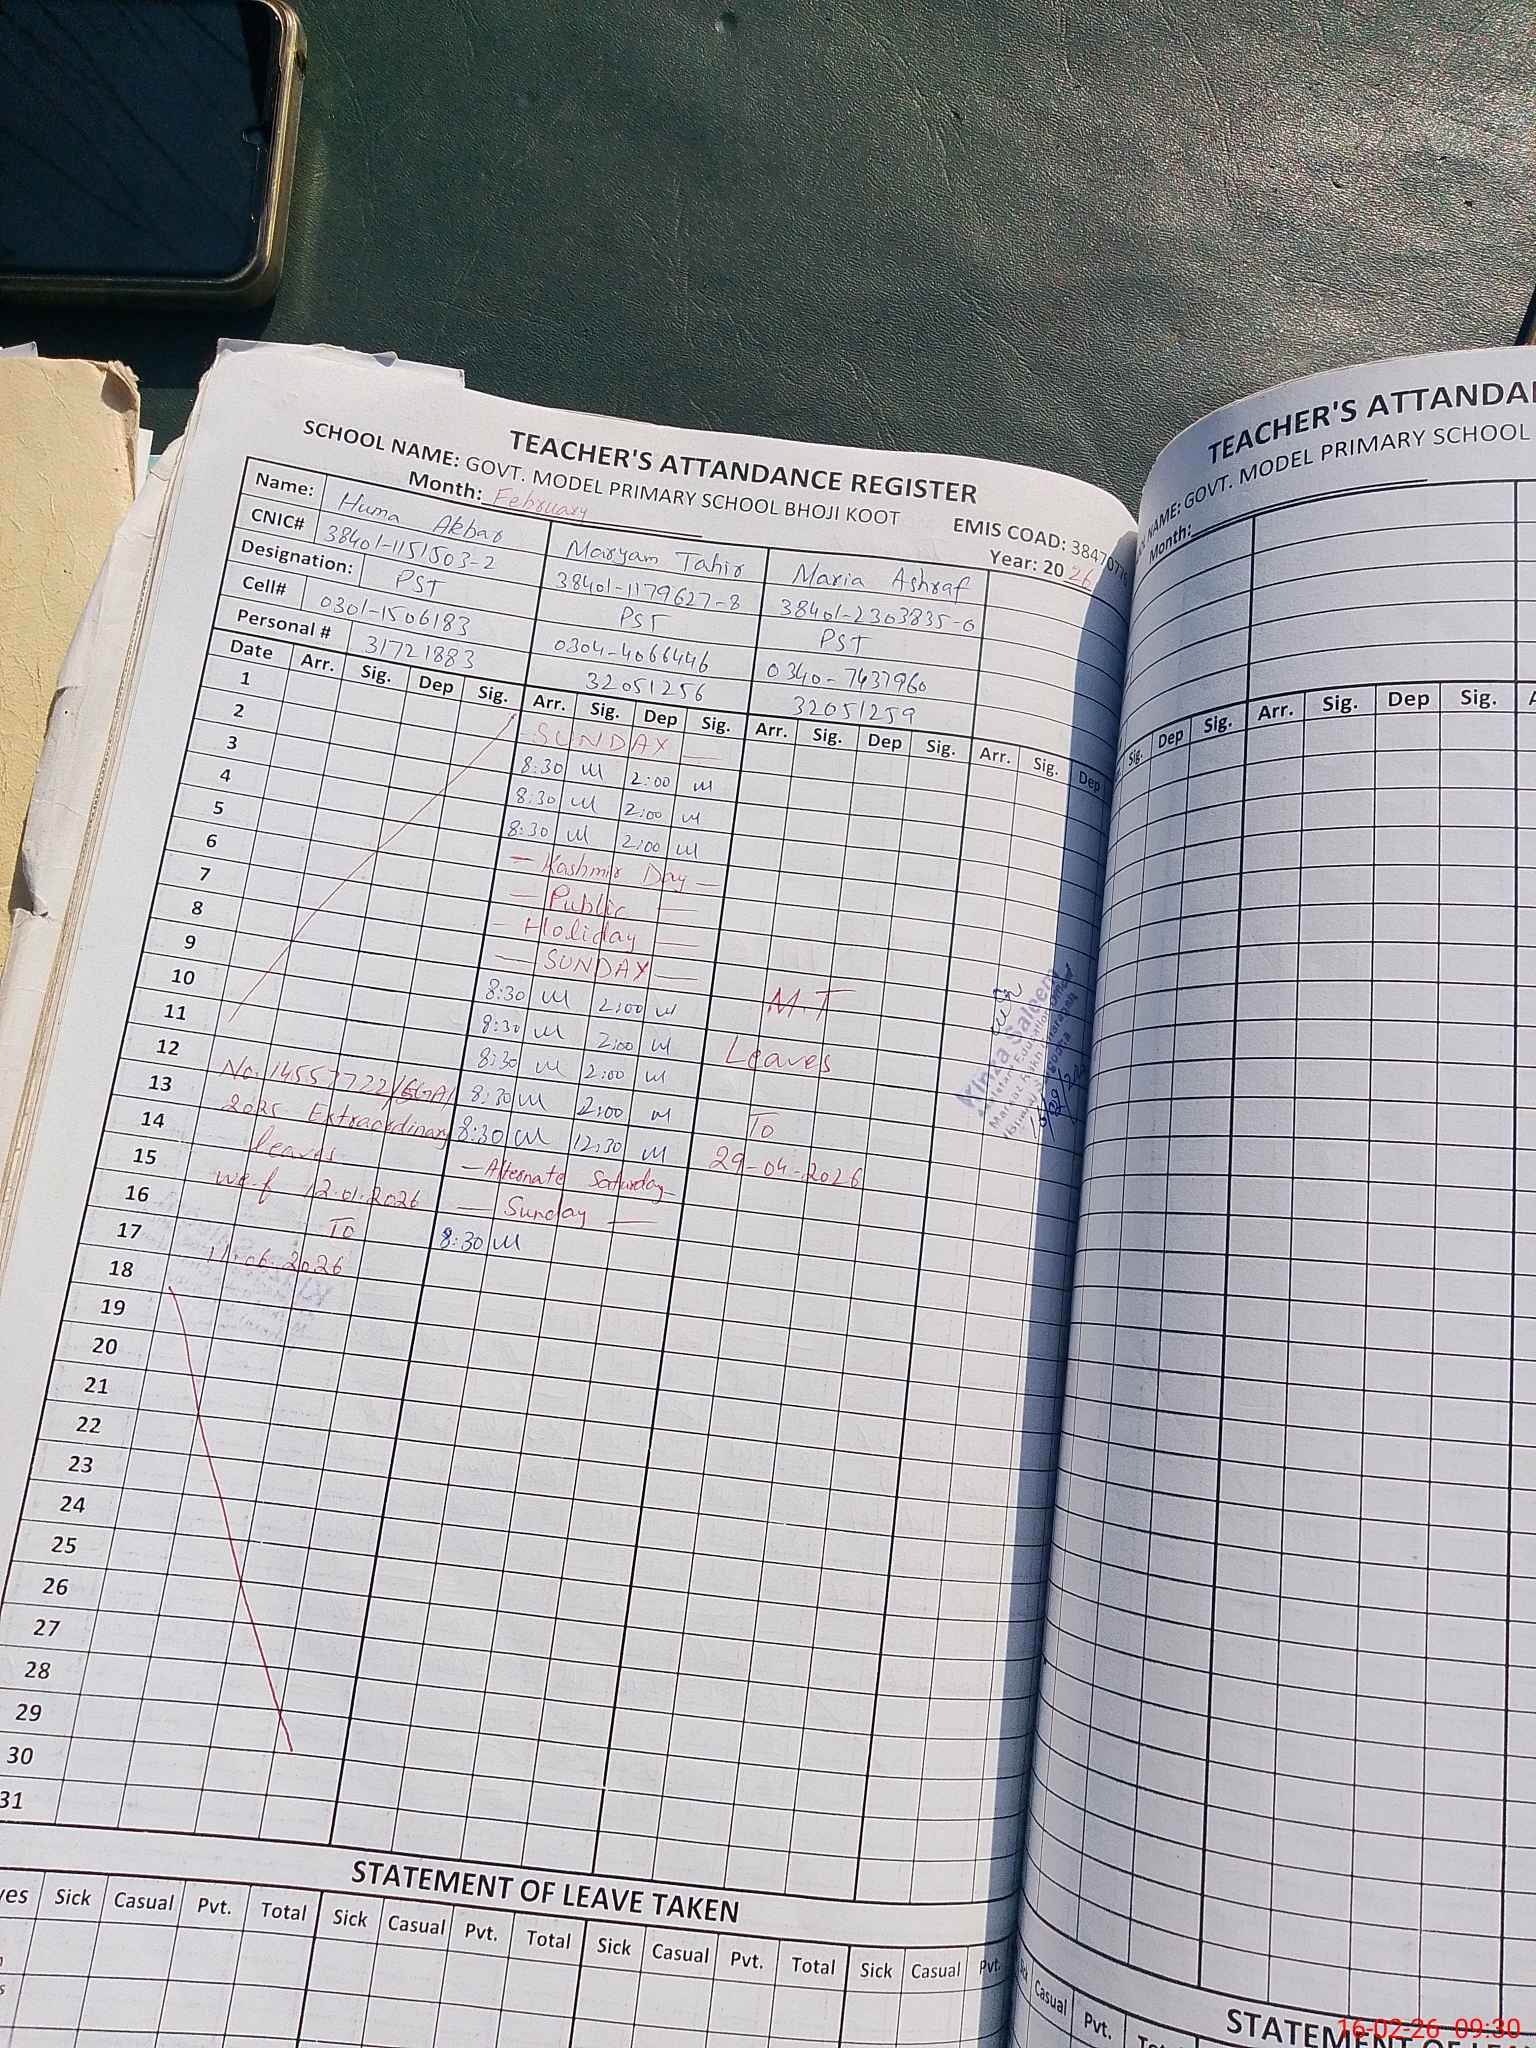 TEACHER'S ATTANDANCE REGISTER
SCHOOL NAME: GOVT. MODEL PRIMARY SCHOOL BHOJI KOOT
EMIS COAD: 384707
Month: February
Year: 20 26
Name: Huma Akbar Maryam Tahir Maria Ashraf
CNIC# 38401-1151503-2 38401-1179627-8 38401-2303835-0
Designation: PST PST PST
Cell# 0301-1506183 0304-4066446 0340-7437960
Personal # 31721883 32051256 32051259
Date Arr. Sig. Dep Sig. Arr. Sig. Dep Sig. Arr. Sig. Dep Sig. Arr. Sig. Dep
1 — SUNDAY —
2 8:30 2:00
3 8:30 2:00
4 8:30 2:00
5 — Kashmir Day —
6 — Public —
7 — Holiday —
8 — SUNDAY —
9 8:30 2:00
10 8:30 2:00
11 8:30 2:00
12 8:30 2:00
13 8:30 12:30
14 — Alternate Saturday —
15 — Sunday —
16 8:30
17
18
19
20
21
22
23
24
25
26
27
28
29
30
31
No. 14557722/
2025 Extraordinary
leaves
w.e.f 12.01.2026
To
11.06.2026
M.T
Leaves
To
29-04-2026
Saleem
STATEMENT OF LEAVE TAKEN
Sick Casual Pvt. Total Sick Casual Pvt. Total Sick Casual Pvt. Total Sick Casual Pvt.
TEACHER'S ATTANDA
NAME: GOVT. MODEL PRIMARY SCHOOL
Month:
Sig. Dep Sig. Arr. Sig. Dep Sig.
Casual Pvt.
STATEMENT OF LEA
16-02-26 09:30